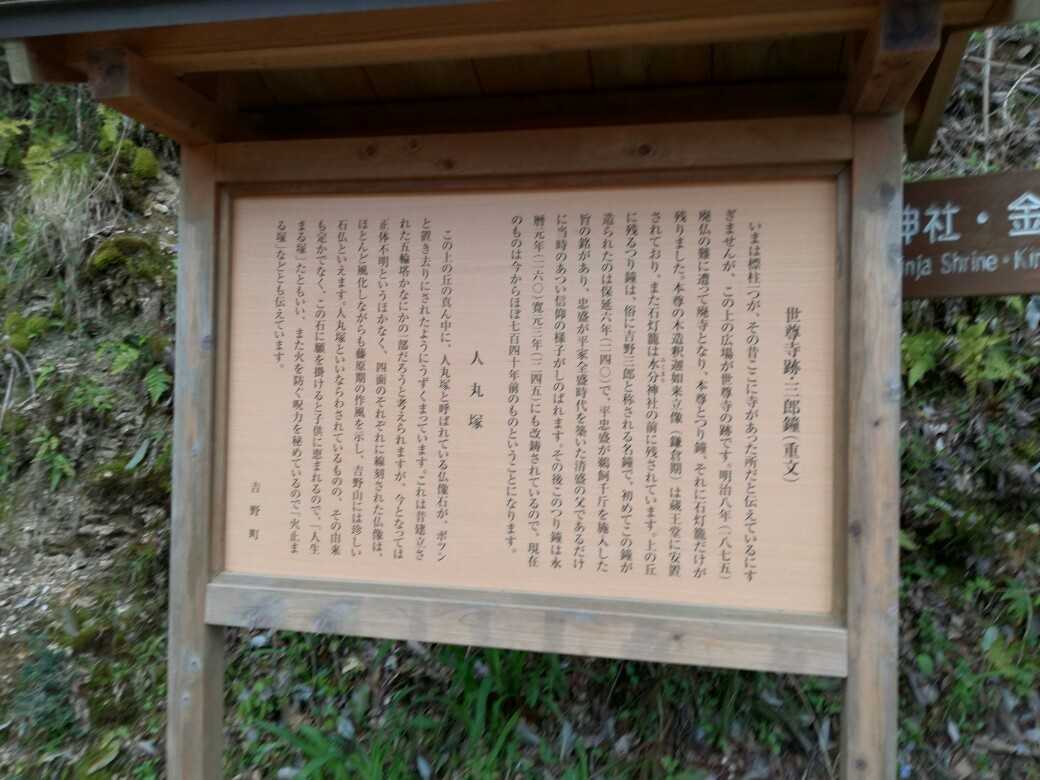 世尊寺跡・三郎鐘（重文）
いまは標柱一つが、その昔ここに寺があった所だと伝えているにす
ぎませんが、この上の広場が世尊寺の跡です。明治八年（一八七五）
廃仏の難に遭って廃寺となり、本尊とつり鐘、それに石灯籠だけが
残りました。本尊の木造釈迦如来立像（鎌倉期）は蔵王堂に安置
されており、また石灯籠は水分神社の前に残されています。上の丘
みくまり
に残るつり鐘は、俗に吉野三郎と称される名鐘で、初めてこの鐘が
造られたのは保延六年（一一四〇）で、平忠盛が鵜飼千斤を施入した
旨の銘があり、忠盛が平家全盛時代を築いた清盛の父であるだけ
に当時のあつい信仰の様子がしのばれます。その後このつり鐘は永
暦元年（一一六〇）寛元三年（一二四五）にも改鋳されているので、現在
のものは今からほぼ七百四十年前のものということになります。
人丸塚
この上の丘の真ん中に、人丸塚と呼ばれている仏像石が、ポツン
と置き去りにされたようにうずくまっています。これは昔建立さ
れた五輪塔かなにかの一部だろうと考えられますが、今となっては
正体不明というほかなく、四面のそれぞれに線刻された仏像は、
ほとんど風化しながらも藤原期の作風を示し、吉野山には珍しい
石仏といえます。人丸塚といいならわされているものの、その由来
も定かでなく、この石に願を掛けると子供に恵まれるので、「人生
まる塚」たともいい、また火を防ぐ呪力を秘めているので「火止ま
る塚」などとも伝えています。
吉野町
神社・金
inja Shrine・Kin